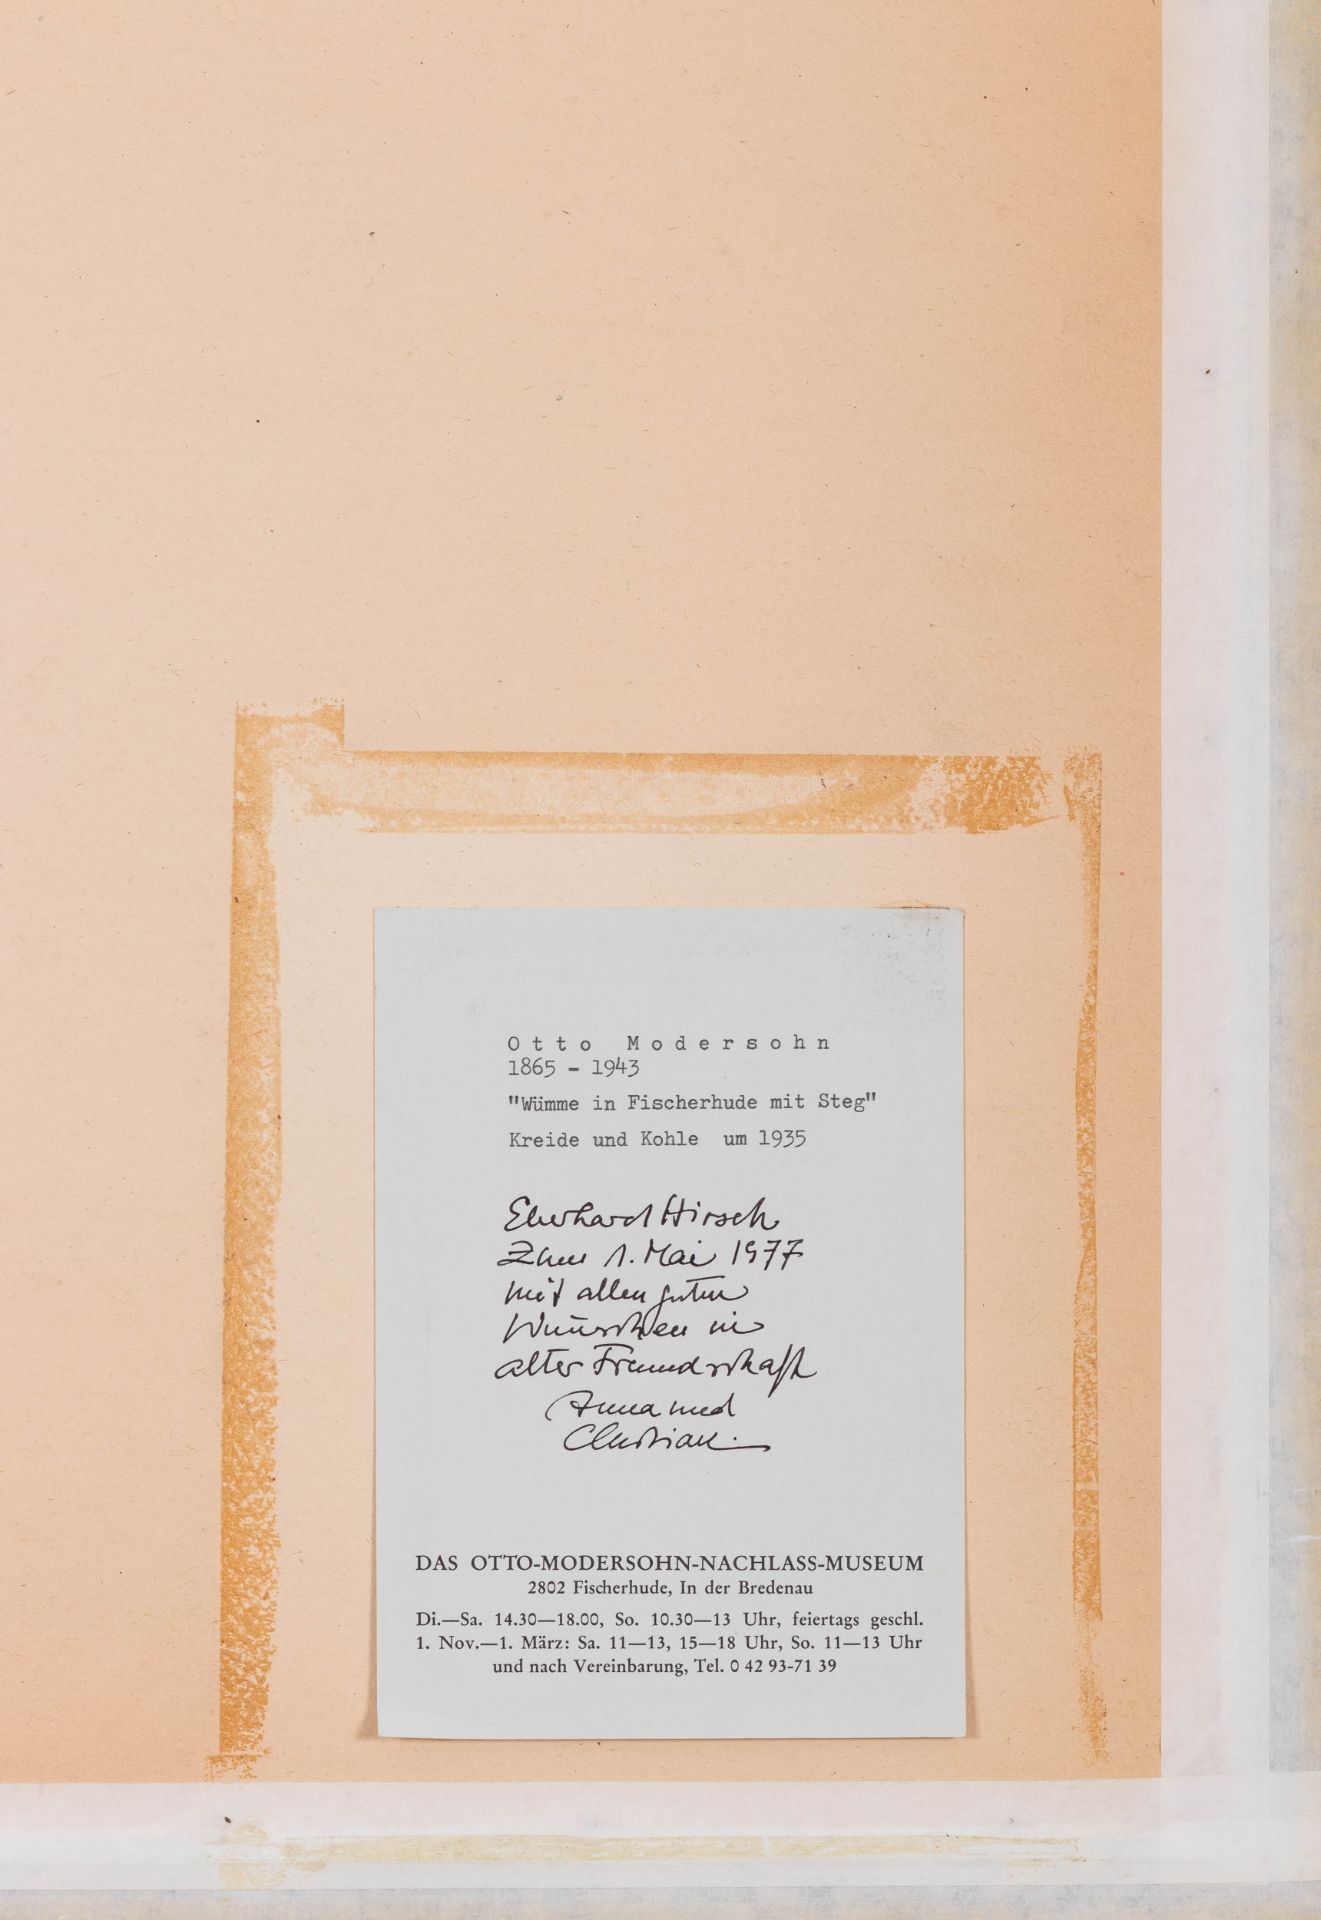 Otto Modersohn
1865 - 1943
"Wümme in Fischerhude mit Steg"
Kreide und Kohle um 1935
Eberhard Hirsch
Zum 1. Mai 1977
mit allen guten
Wünschen in
alter Freundschaft
Anna und
Christian.
DAS OTTO-MODERSOHN-NACHLASS-MUSEUM
2802 Fischerhude, In der Bredenau
Di.—Sa. 14.30—18.00, So. 10.30—13 Uhr, feiertags geschl.
1. Nov.—1. März: Sa. 11—13, 15—18 Uhr, So. 11—13 Uhr
und nach Vereinbarung, Tel. 0 42 93-71 39